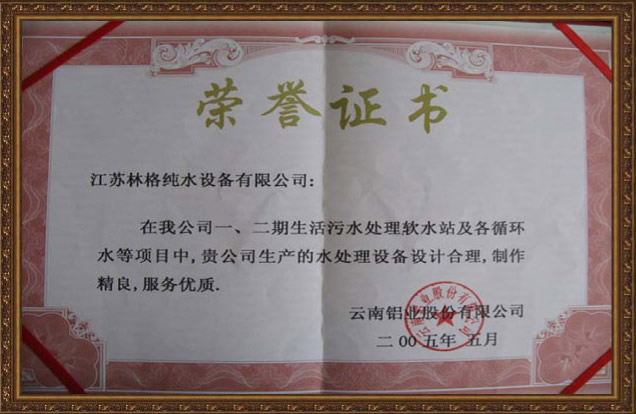 荣誉证书
江苏林格纯水设备有限公司：
在我公司一、二期生活污水处理软水站及各循环
水等项目中,贵公司生产的水处理设备设计合理,制作
精良,服务优质.
云南铝业股份有限公司
二00五年 五月